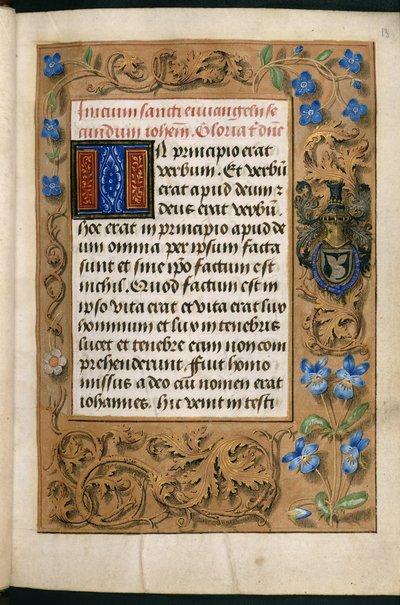 13
Inicium sancti euuangelii se
cundum iohem. Gloria t̄ dn̄e
IN principio erat
verbum. Et verbū
erat apud deum ⁊
deus erat verbū.
hoc erat in principio apud de
um omnia per ipsum facta
sunt et sine ip̄o factum est
nichil. Quod factum est in
ipso vita erat et vita erat lux
hominum et lux in tenebris
lucet et tenebre eam non com
prehenderunt. Fuit homo
missus a deo cui nomen erat
iohannes. hic venit in testi